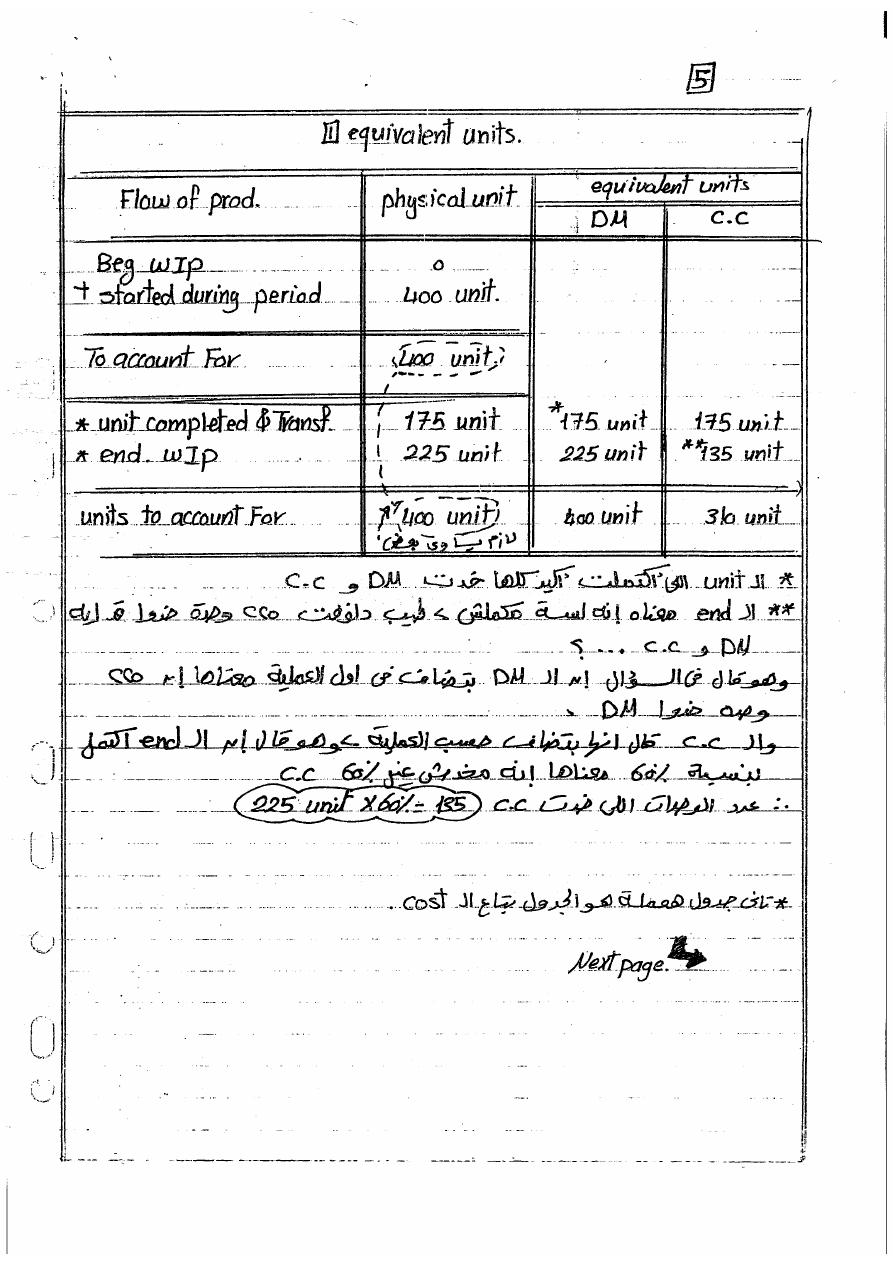 5
1 equivalent units.
Flow of prod. physical unit equivalent units
DM C.C
Beg WIP 0
+ started during period 400 unit.
To account For 400 unit.
* unit completed & Transf. 175 unit *175 unit 175 unit
* end. WIP 225 unit 225 unit **135 unit
units to account For 400 unit 400 unit 310 unit
لازم يساوى بعض
* الـ unit اللى اكتملت اكيد كلها خدت DM و C.C
** الـ end معناه إنه لسة مكملش > طيب دلوقت ٢٢٥ وحدة خدوا قد إيه
DM و C.C ...؟
وهو قال فى السؤال إن الـ DM بتضاف فى اول العملية معناها إن ٢٢٥
وحده خدوا DM
والـ C.C قال انها بتضاف حسب العملية > وهو قال إن الـ end اكتمل
بنسبة 60٪ معناها إنه مخدش غير 60٪ C.C
∴ عدد الوحدات اللى خدت C.C 225 unit X 60٪ = 135
* تانى جدول هعمله هو الجدول بتاع الـ cost.
Next page.